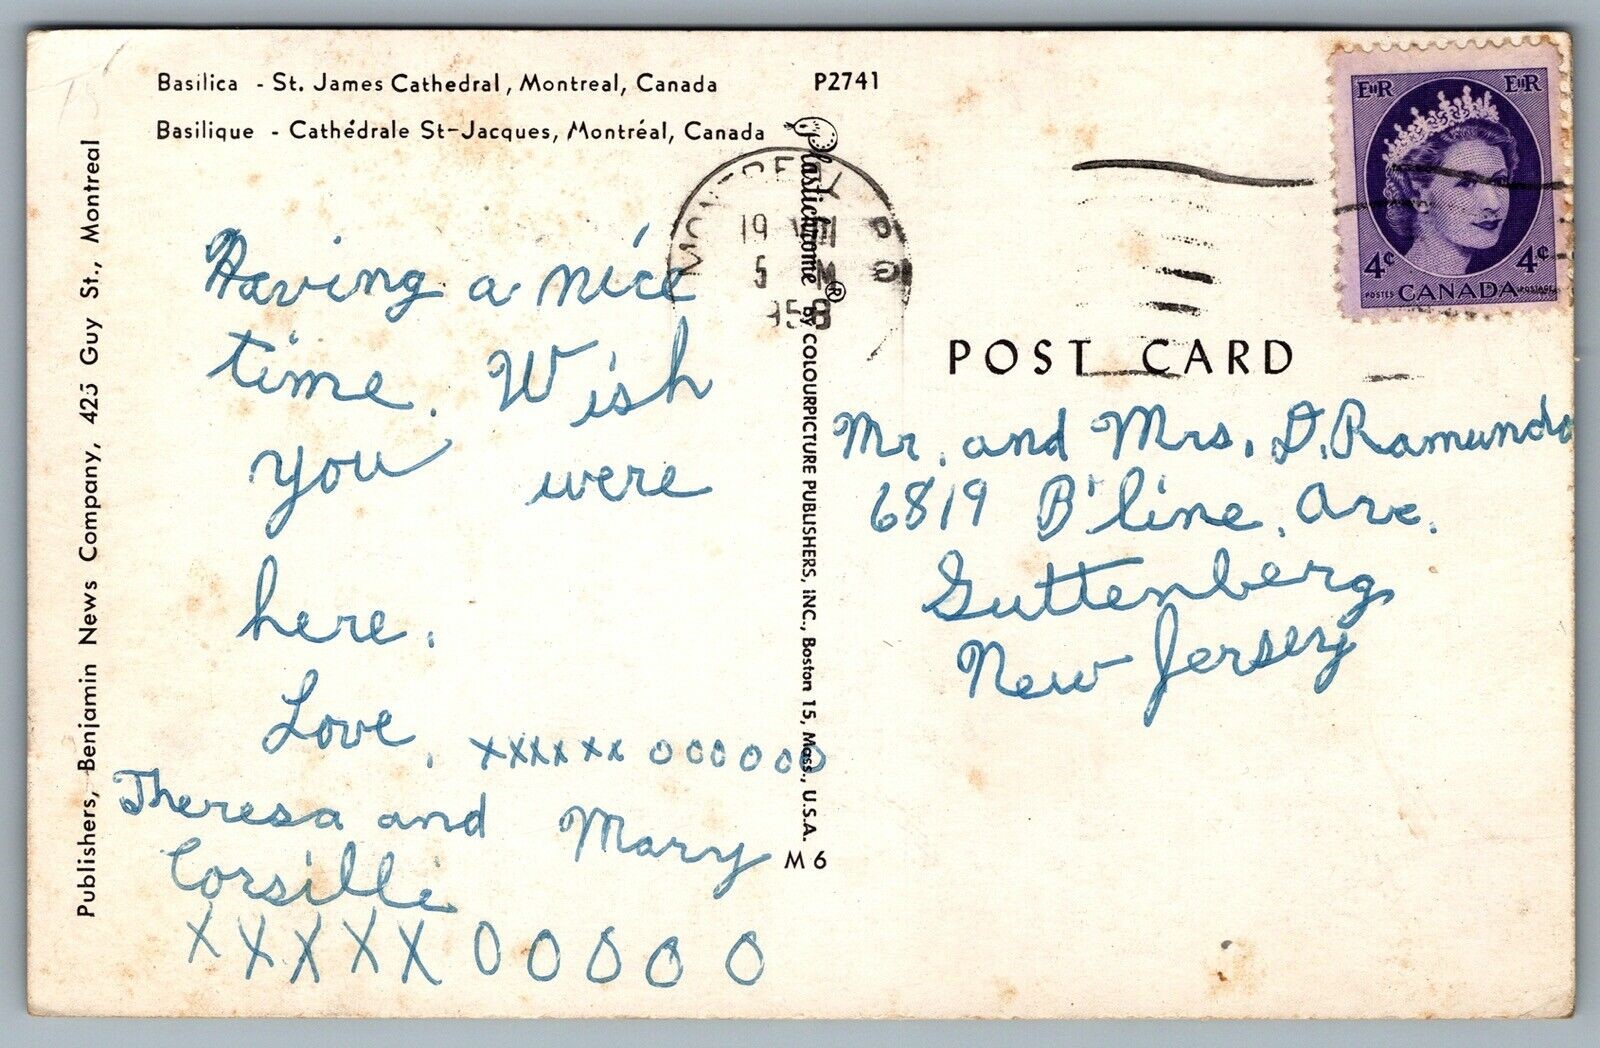 Basilica - St. James Cathedral, Montreal, Canada
Basilique - Cathédrale St-Jacques, Montréal, Canada
P2741
Publishers, Benjamin News Company, 425 Guy St., Montreal
Having a nice
time. Wish
you were
here.
Love, xxxxxx oooooo
Theresa and Mary
Corsilli
XXXXX OOOOO
Plastichrome ® by COLOURPICTURE PUBLISHERS, INC., Boston 15, Mass., U.S.A.
M 6
P Q
19 VIII
5 M
1958
EIIR EIIR
4¢ 4¢
POSTES CANADA POSTAGE
POST CARD
Mr. and Mrs. D. Ramundo
6819 B'line. Ave.
Guttenberg
New Jersey